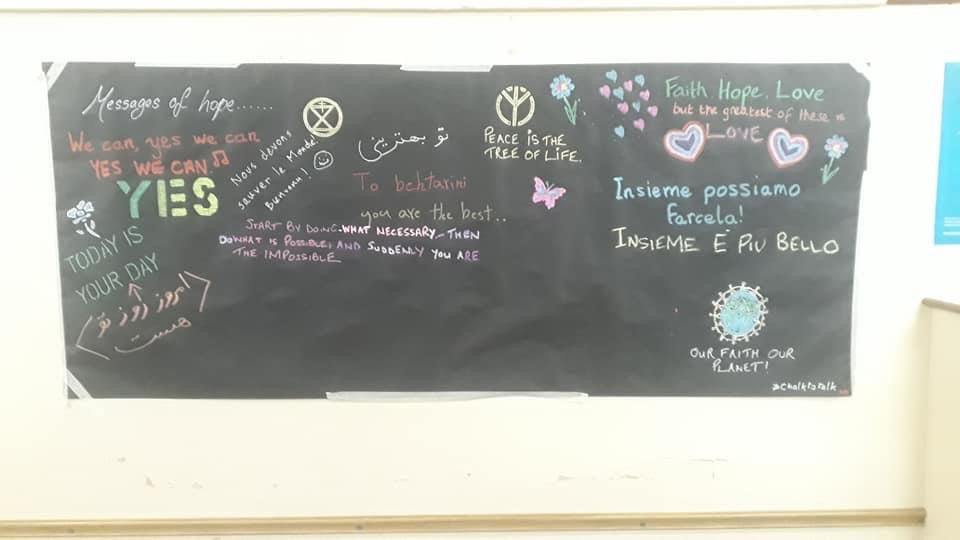 Messages of hope......
We can, yes we can
YES WE CAN.
YES
TODAY IS
YOUR DAY
امروز روز تو
هست
Nous devons
sauver le Monde!
تو بهترینی
To behtarini
you are the best..
START BY DOING WHAT NECESSARY - THEN
DO WHAT IS POSSIBLE; AND SUDDENLY YOU ARE
THE IMPOSSIBLE
PEACE IS THE
TREE OF LIFE.
Faith, Hope, Love
but the greatest of these is
LOVE
Insieme possiamo
farcela!
INSIEME È PIU BELLO
OUR FAITH OUR
PLANET!
#ChalktoTalk